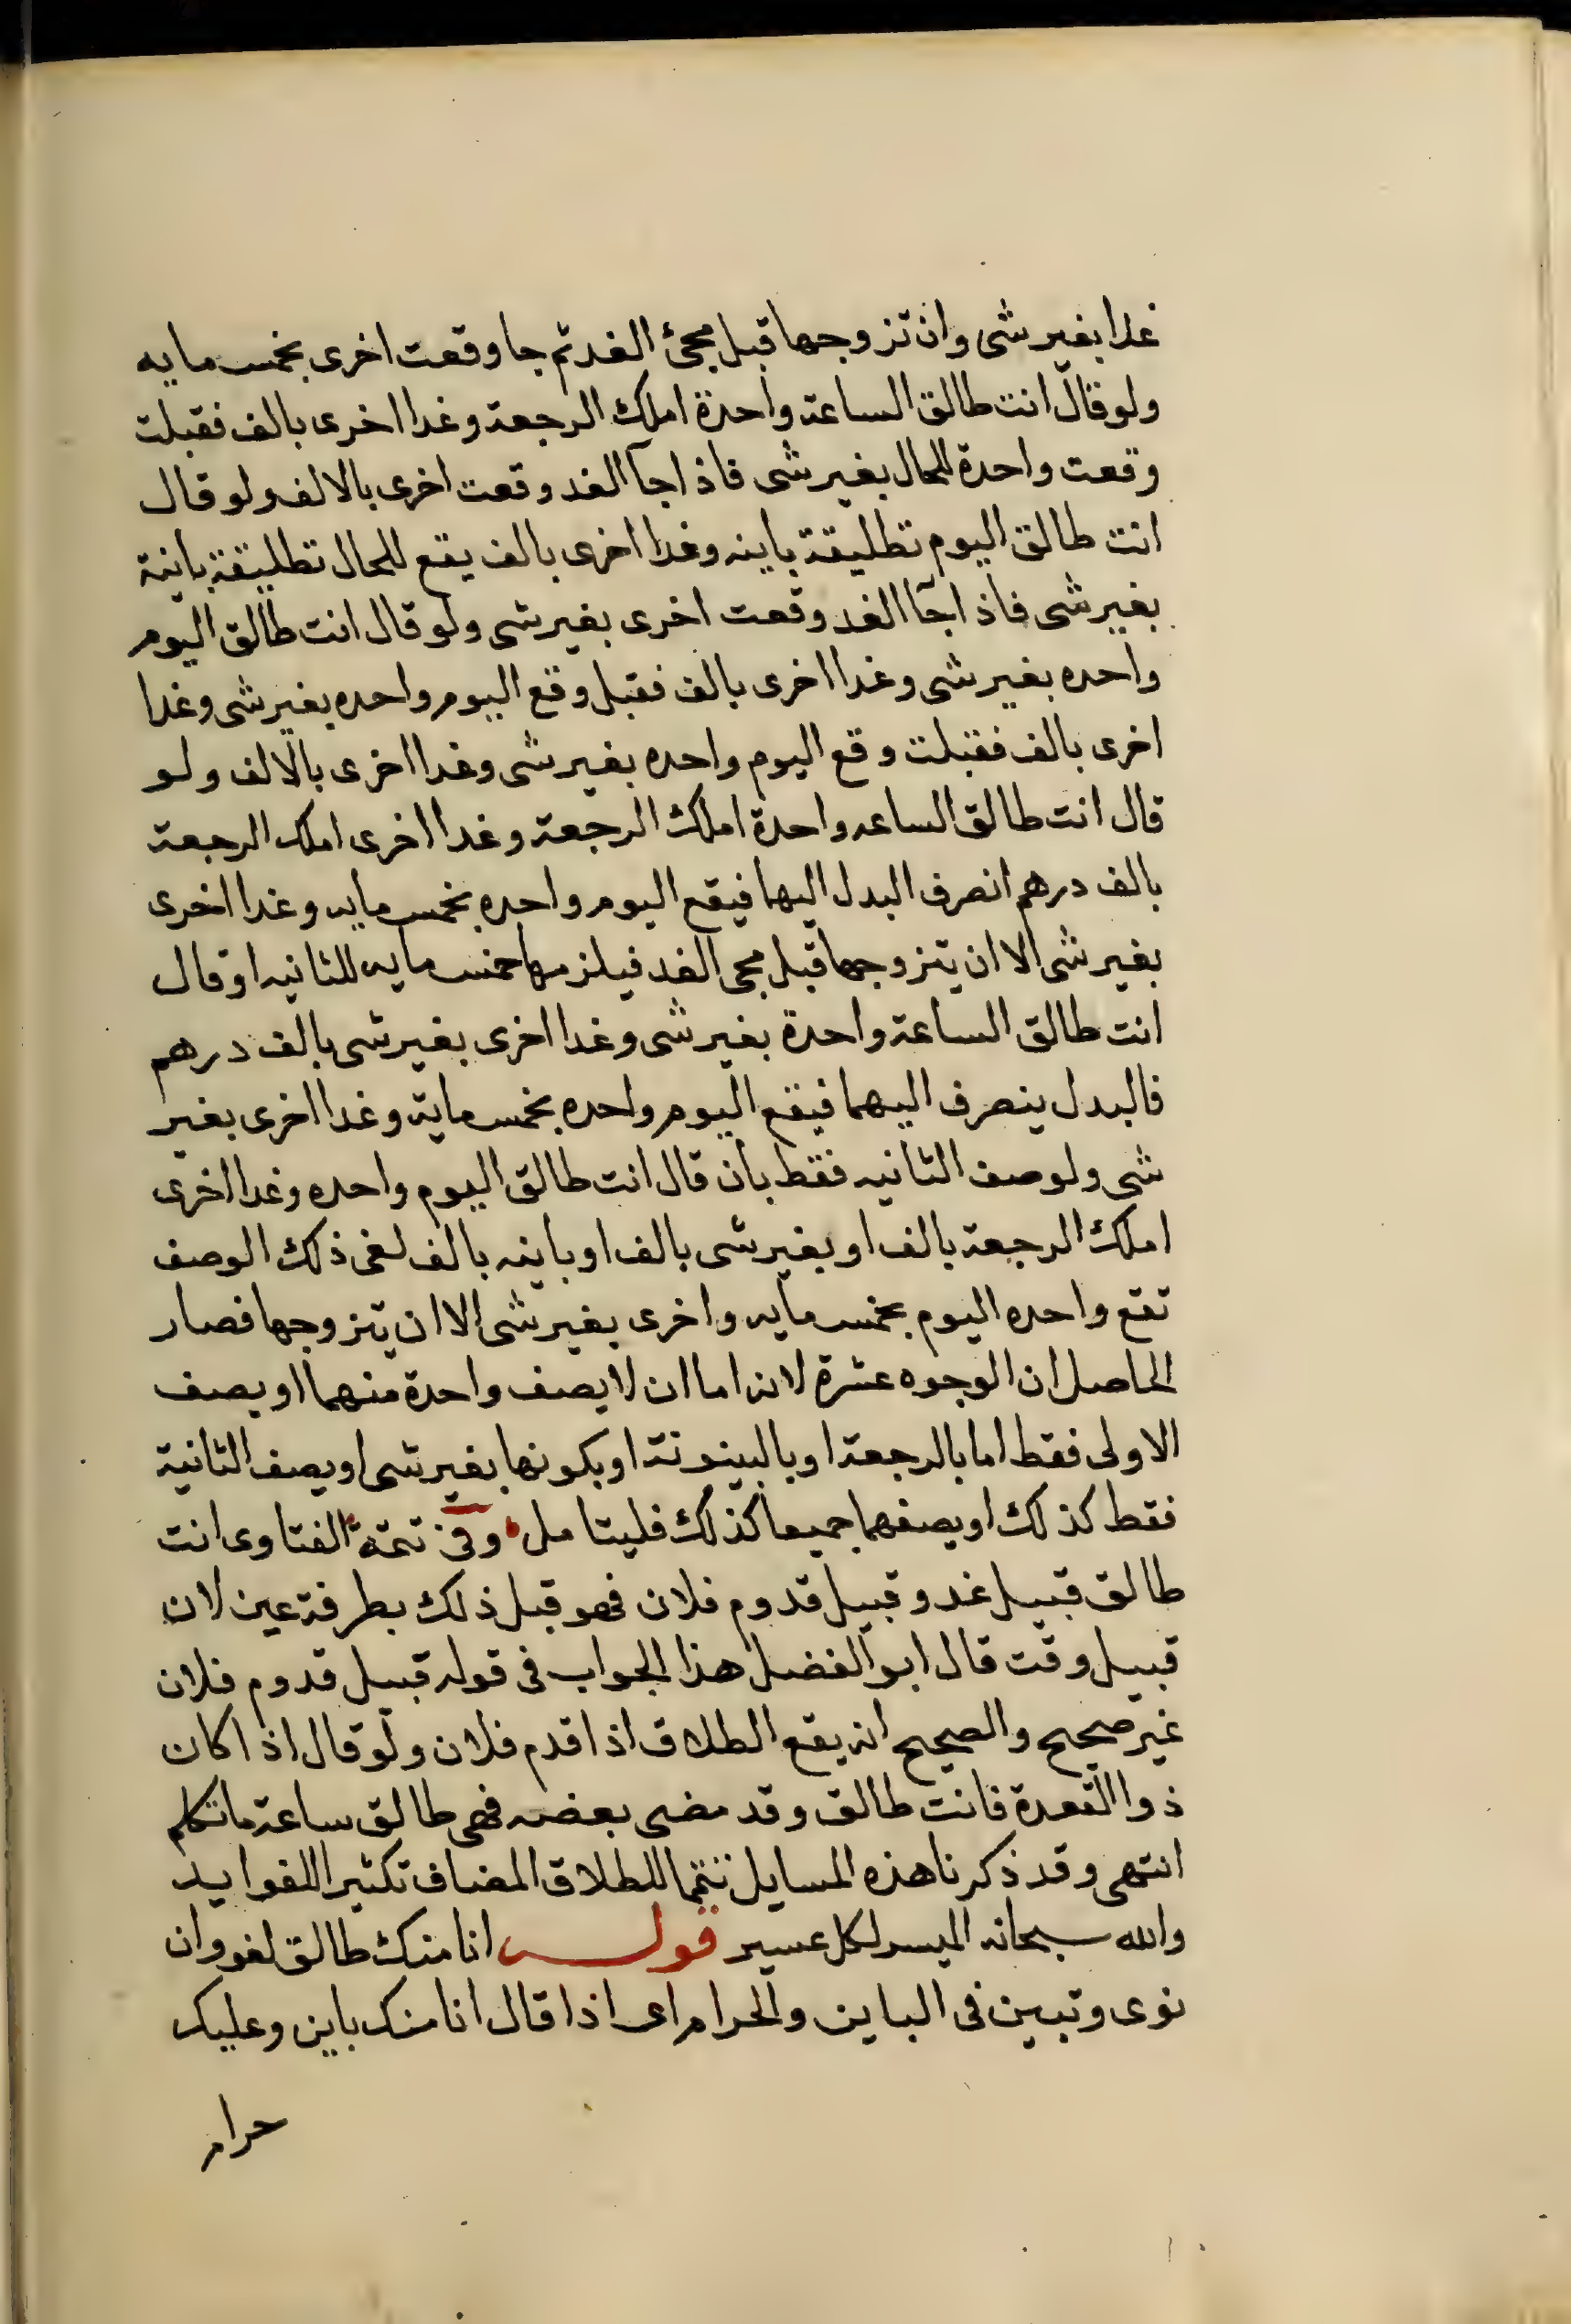 غدا بغير شى وان تزوجها قبل مجئ الغد ثم جا وقعت اخرى بخمس مايه
ولو قال انت طالق الساعة واحدة املك الرجعة وغدا اخرى بالف فقبلت
وقعت واحدة للحال بغير شى فاذا جآ الغد وقعت اخرى بالالف ولو قال
انت طالق اليوم تطليقة باينه وغدا اخرى بالف يقع للحال تطليقة باينة
بغير شى فاذا جآ الغد وقعت اخرى بغير شى ولو قال انت طالق اليوم
واحده بغير شى وغدا اخرى بالف فقبل وقع اليوم واحده بغير شى وغدا
اخرى بالف فقبلت وقع اليوم واحده بغير شى وغدا اخرى بالالف ولو
قال انت طالق الساعه واحدة املك الرجعة وغدا اخرى املك الرجعة
بالف درهم انصرف البدل اليهما فيقع اليوم واحده بخمس مايه وغدا اخرى
بغير شى الا ان يتزوجها قبل مجى الغد فيلزمها خمس مايه للثانيه او قال
انت طالق الساعة واحدة بغير شى وغدا اخرى بغير شى بالف درهم
فالبدل ينصرف اليهما فيقع اليوم واحده بخمس ماية وغدا اخرى بغير
شى ولو صف الثانيه فقط بان قال انت طالق اليوم واحده وغدا اخرى
املك الرجعة بالف او بغير شى بالف او باينه بالف لغى ذلك الوصف
تقع واحده اليوم بخمس مايه واخرى بغير شى الا ان يتزوجها فصار
الحاصل ان الوجوه عشرة لانه اما ان لا يصف واحدة منهما او يصف
الاولى فقط اما بالرجعة او بالبينونة او بكونها بغير شى او يصف الثانية
فقط كذلك او يصفهما جميعا كذلك فليتامل وفى تتمة الفتاوى انت
طالق قبيل غد وقبيل قدوم فلان فهو قبل ذلك بطرفة عين لان
قبيل وقت قال ابو الفضل هذا الجواب فى قوله قبيل قدوم فلان
غير صحيح والصحيح انه يقع الطلاق اذا قدم فلان ولو قال اذا كان
ذوا القعدة فانت طالق وقد مضى بعضه فهى طالق ساعة ما تكلم
انتهى وقد ذكرنا هذه المسايل تتتما للطلاق المضاف تكثيرا للفوايد
والله سبحانه الميسر لكل عسير قوله انا منك طالق لغو وان
نوى وتبين فى الباين والحرام اى اذا قال انا منك باين وعليك
حرام